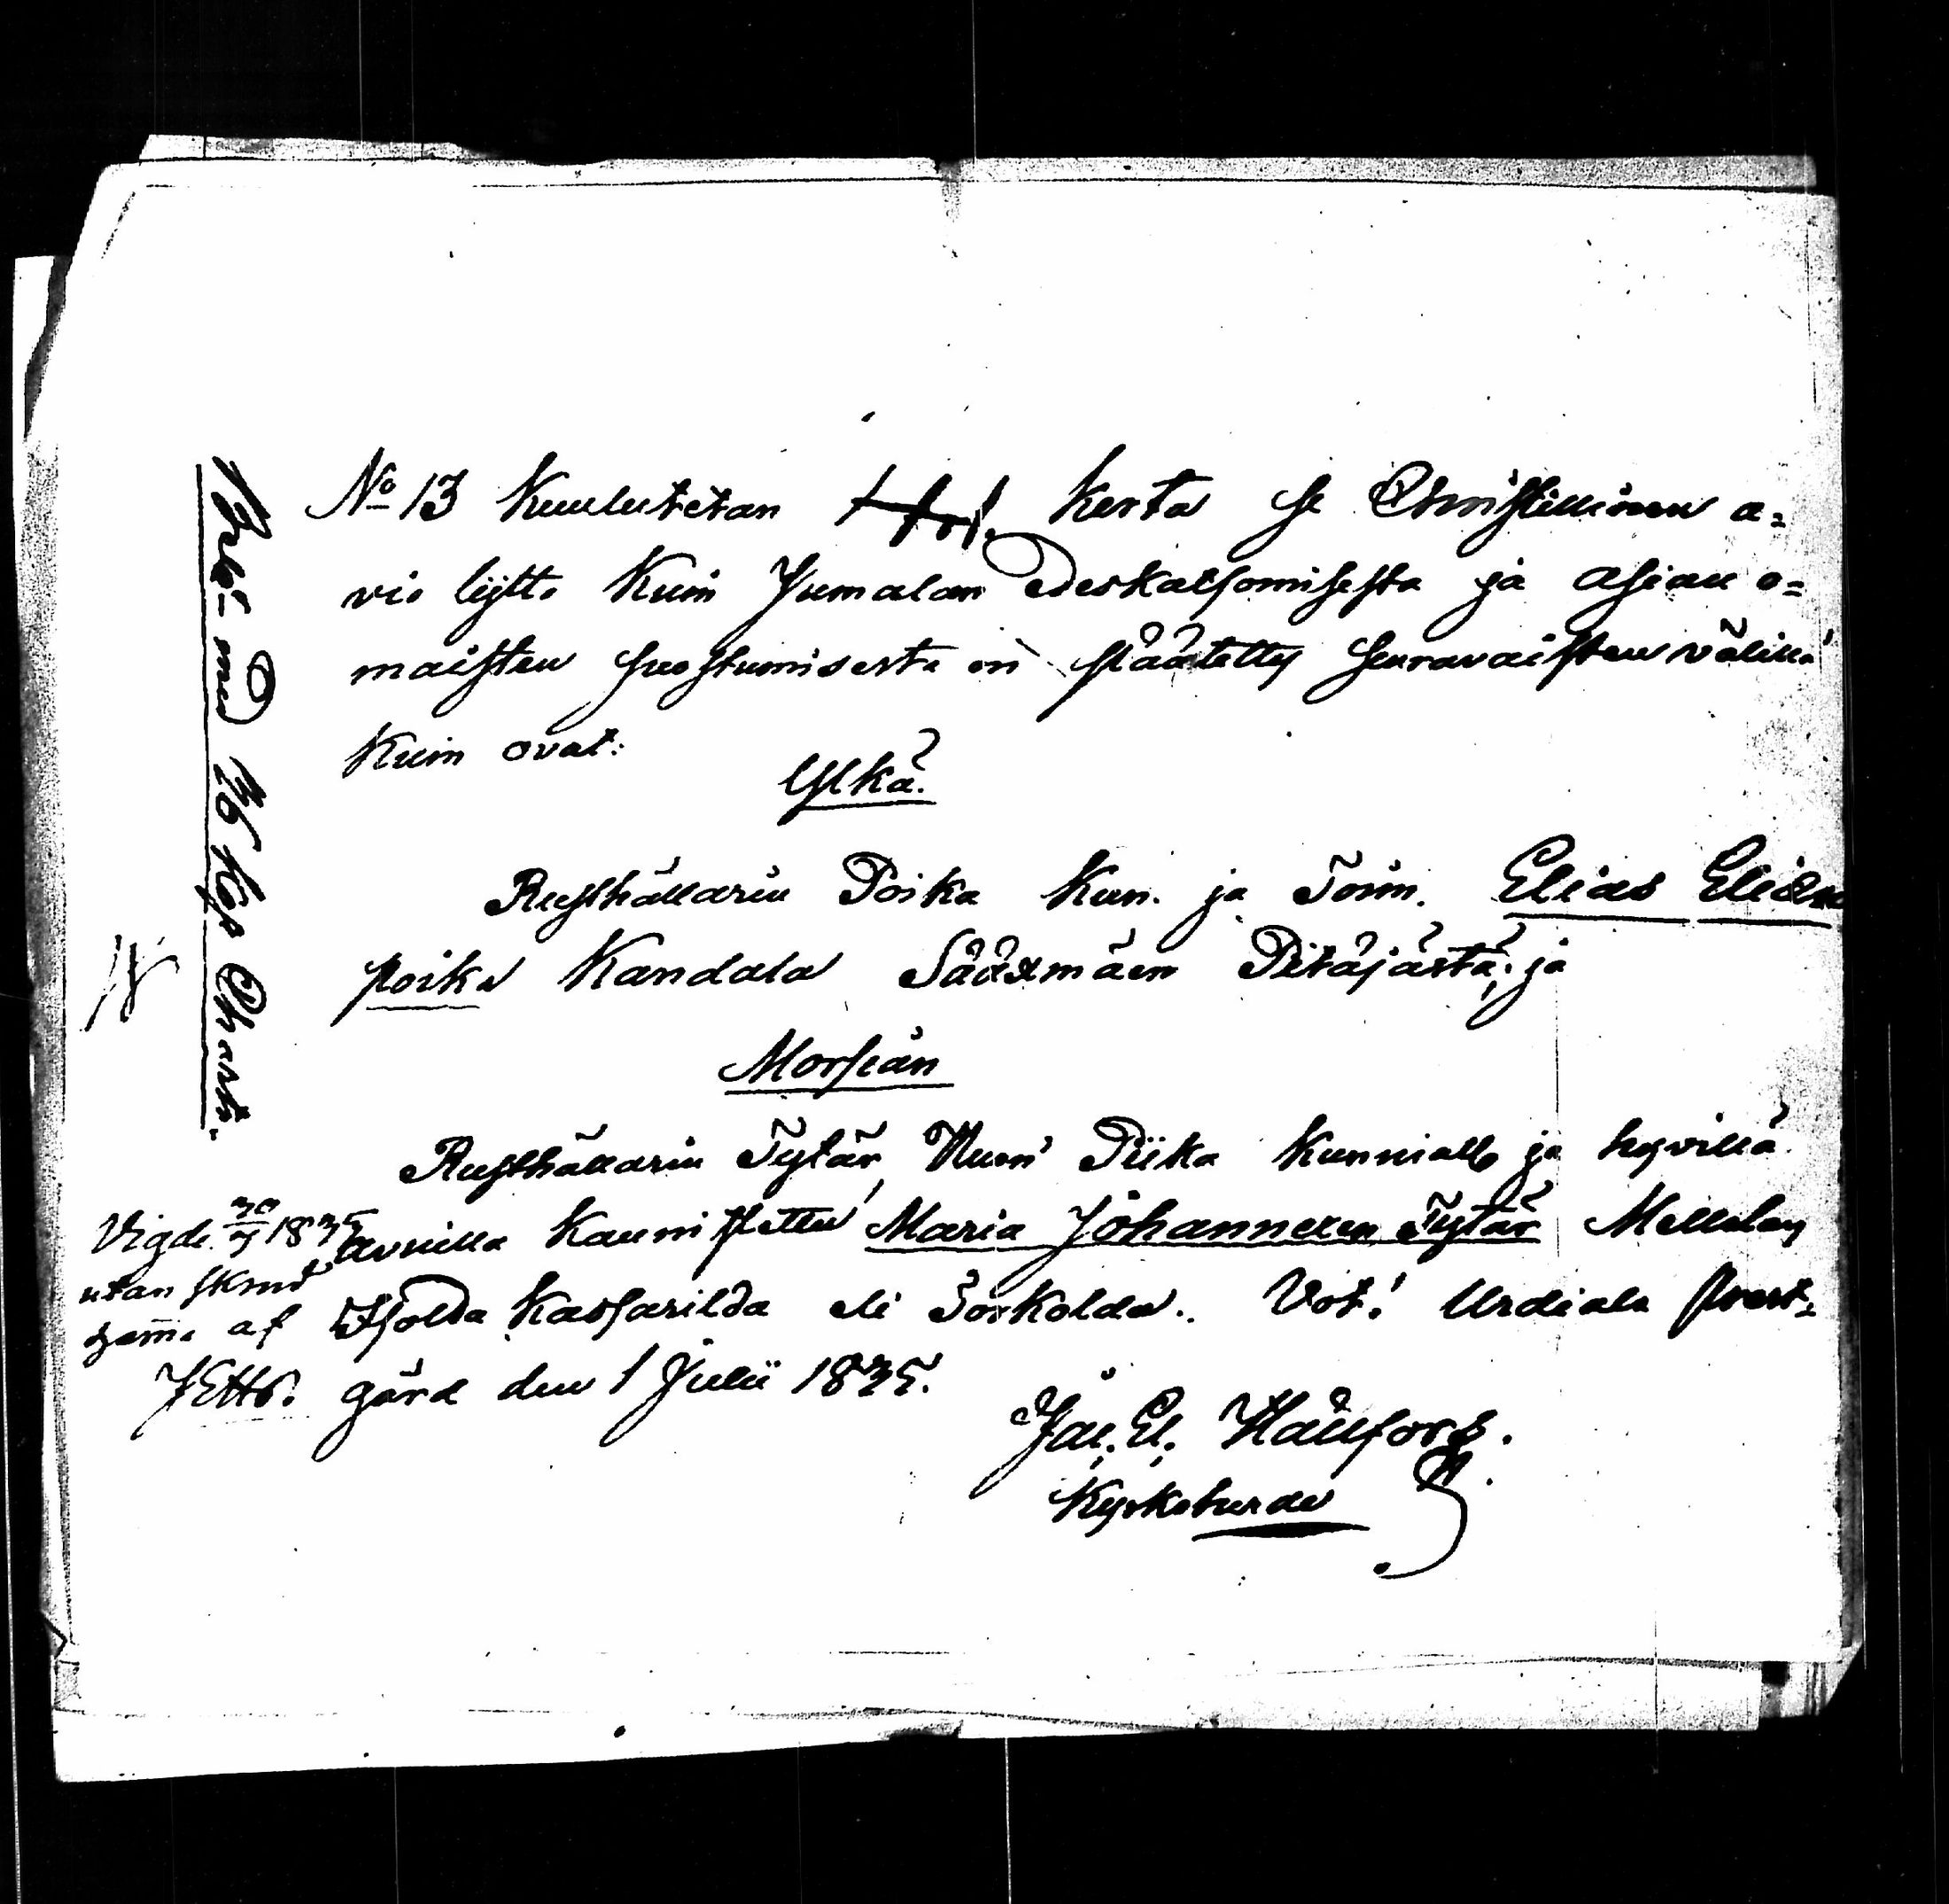 No 13 Kuulutetan kerta se Christillinen a=
vio lijtto Kuin Jumalan Edeskatsomisesta ja asian o=
maisten suostumisesta on päätetty seuravaisten välillä
Kuin ovat:
Ylkä.
Rusthållarin Poika Kun. ja Toim. Elias Elian
poika Kandala Sääxmäen Pitäjästä; ja
Morsian
Rusthållarin Tytär, Nuori Piika Kunnialla ja hyvillä
avuilla Kaunistettu Maria Johannexen Tytär Mellola
Isolda Kassarilda eli Torkolda. Vot! Urdiala Prest=
gård den 1 Julii 1835.
Jac. El. Hällfors.
Kyrkoherde
Vigde 30/7 1835
utan
af
16 Kop